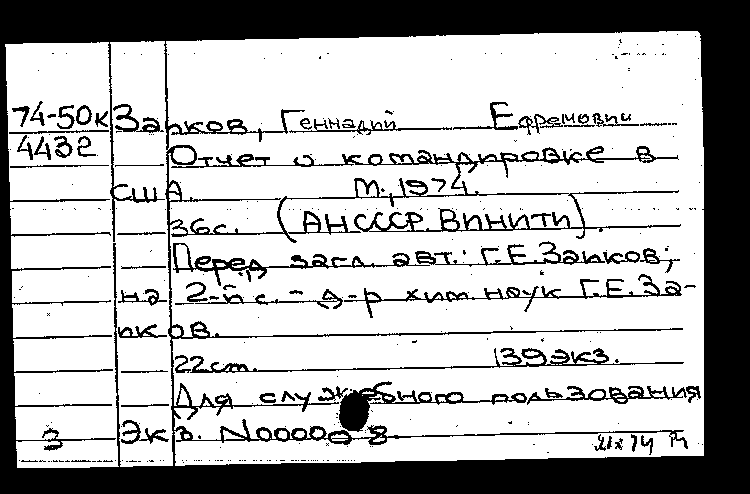 74-50к Заиков, Геннадий Ефремович
4432 Отчет о командировке в
США. М., 1974.
36с. (АН СССР. ВИНИТИ).
Перед загл. авт.: Г.Е.Заиков;
на 2-й с. - д-р хим. наук Г.Е.За-
иков.
22см. 139 экз.
Для служебного пользования
3 Экз. N00000 8.